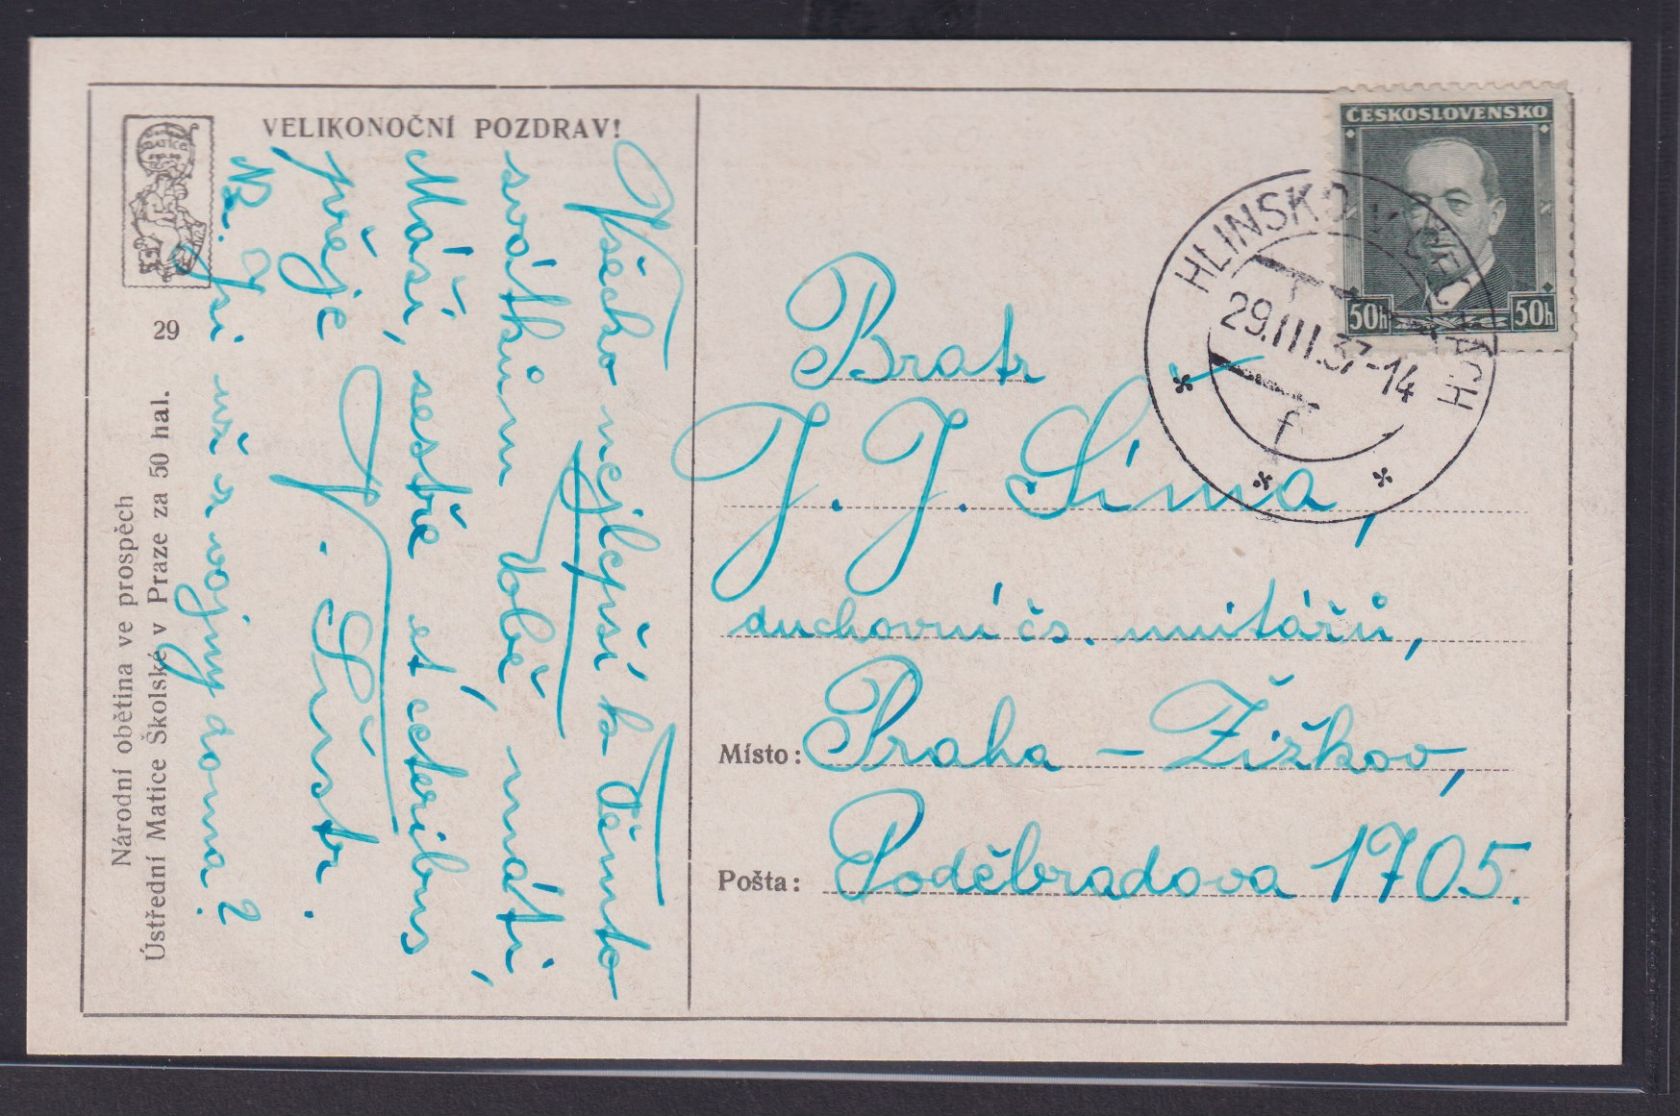 VELIKONOČNÍ POZDRAV!
Všecko nejlepší k Těmto
svátkům Tobě, máti,
Máši, sestře et ceteribus
přeje
J. Šústr.
NB. Jsi už z vojny doma?
29
Národní obětina ve prospěch
Ústřední Matice Školské v Praze za 50 hal.
ČESKOSLOVENSKO
50h 50h
HLINSKO V ČECHÁCH
29.III.37-14
f
Bratr
J. J. Síma,
duchovní čs. unitářů,
Místo: Praha – Žižkov,
Pošta: Poděbradova 1705.